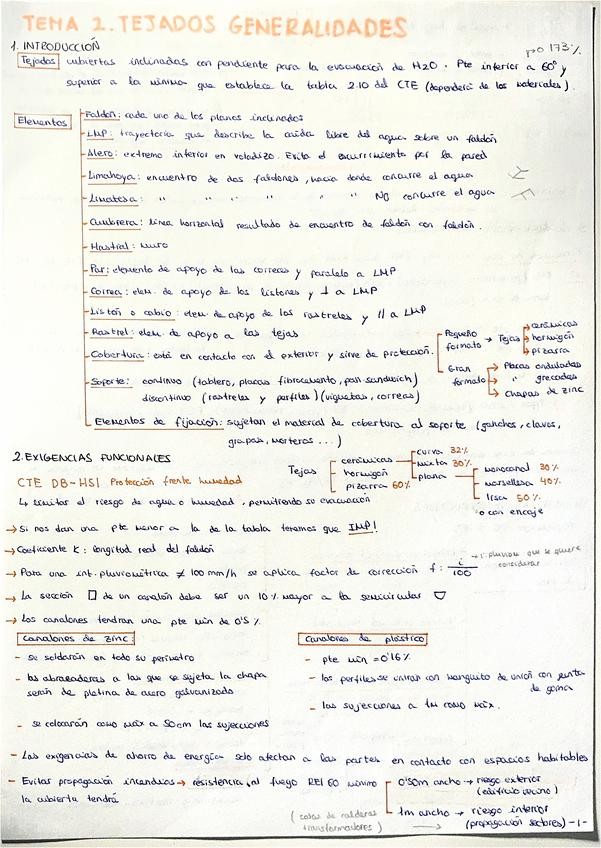 TEMA 2. TEJADOS GENERALIDADES
1. INTRODUCCIÓN
p0 173%
Tejados cubiertas inclinadas con pendiente para la evacuación de H2O. Pte inferior a 60º y
superior a la mínima que establece la tabla 2.10 del CTE (dependerá de los materiales).
Elementos
Faldón: cada uno de los planos inclinados
LMP: trayectoria que describe la caída libre del agua sobre un faldón
Alero: extremo inferior en voladizo. Evita el escurrimiento por la pared
Limahoya: encuentro de dos faldones, hacia donde concurre el agua
Limatesa: " " " " " " NO concurre el agua
Cumbrera: línea horizontal resultado de encuentro de faldón con faldón.
Hastial: muro
Par: elemento de apoyo de las correas y paralelo a LMP
Correa: elem. de apoyo de los listones y ⊥ a LMP
Listón o cabio: elem. de apoyo de los rastreles y // a LMP
Rastrel: elem. de apoyo a las tejas.
Cobertura: está en contacto con el exterior y sirve de protección.
Pequeño formato → Tejas → cerámicas
→ hormigón
→ pizarra
Gran formato → Placas onduladas
→ " grecadas
→ chapas de zinc
Soporte: continuo (tablero, placas fibrocemento, pan. sandwich)
discontinuo (rastreles y perfiles) (viguetas, correas)
Elementos de fijación: sujetan el material de cobertura al soporte (ganchos, clavos,
grapas, morteros ...)
2. EXIGENCIAS FUNCIONALES
Tejas
cerámicas
hormigón
pizarra 60%
curva 32%
mixta 30%
plana
monocanal 30%
marsellesa 40%
lisa 50%
o con encaje
CTE DB-HS1 Protección frente humedad
↳ Limitar el riesgo de agua o humedad, permitiendo su evacuación
→ Si nos dan una pte menor a la de la tabla tenemos que IMP!
→ Coeficiente K: longitud real del faldón
→ Para una int. pluviométrica ≠ 100 mm/h se aplica factor de corrección f: i/100
→ i. pluviom que se quiere
considerar
→ La sección □ de un canalón debe ser un 10% mayor a la semicircular
→ Los canalones tendrán una pte min de 0'5%
Canalones de zinc:
- se soldarán en todo su perímetro
- las abrazaderas a las que se sujeta la chapa
serán de platina de acero galvanizado
- se colocarán como máx a 50cm las sujecciones
Canalones de plástico
- pte min = 0'16%
- los perfiles se unirán con manguito de unión con junta
de goma
- las sujecciones a 1m como máx.
- Las exigencias de ahorro de energía solo afectan a las partes en contacto con espacios habitables
- Evitar propagación incendios → resistencia al fuego REI 60 mínimo
la cubierta tendrá
0'50m ancho → riesgo exterior
(edificio vecino)
1m ancho → riesgo interior
(propagación sectores)
(salas de calderas
transformadores) →
-1-